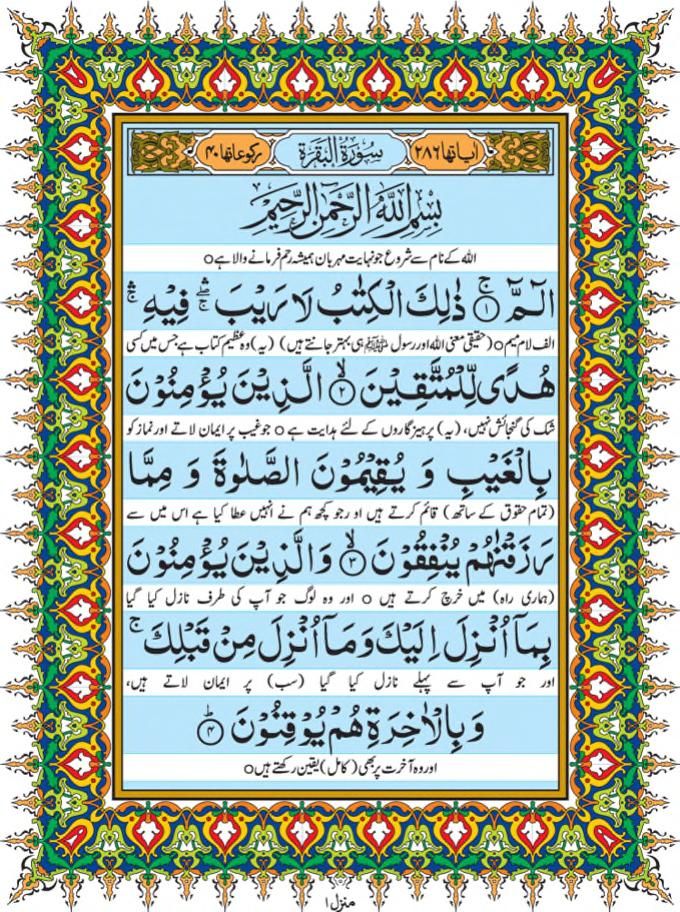 اٰیاتها ۲۸۶ سُوْرَةُ الْبَقَرَةِ رکوعاتها ۴۰
بِسْمِ اللّٰهِ الرَّحْمٰنِ الرَّحِيْمِ
اللہ کے نام سے شروع جو نہایت مہربان ہمیشہ رحم فرمانے والا ہے ۝
الٓمّٓ ۚ﴿۱﴾ ذٰلِكَ الْكِتٰبُ لَا رَيْبَ ۛۖۚ فِيْهِ ۛۚ
الف لام میم ۝ (حقیقی معنی اللہ اور رسول ﷺ ہی بہتر جانتے ہیں) (یہ) وہ عظیم کتاب ہے جس میں کسی
هُدًى لِّلْمُتَّقِيْنَ ۙ﴿۲﴾ الَّذِيْنَ يُؤْمِنُوْنَ
شک کی گنجائش نہیں، (یہ) پرہیزگاروں کے لئے ہدایت ہے ۝ جو غیب پر ایمان لاتے اور نماز کو
بِالْغَيْبِ وَ يُقِيْمُوْنَ الصَّلٰوةَ وَ مِمَّا
(تمام حقوق کے ساتھ) قائم کرتے ہیں اور جو کچھ ہم نے انہیں عطا کیا ہے اس میں سے
رَزَقْنٰهُمْ يُنْفِقُوْنَ ۙ﴿۳﴾ وَالَّذِيْنَ يُؤْمِنُوْنَ
(ہماری راہ) میں خرچ کرتے ہیں ۝ اور وہ لوگ جو آپ کی طرف نازل کیا گیا
بِمَاۤ اُنْزِلَ اِلَيْكَ وَمَاۤ اُنْزِلَ مِنْ قَبْلِكَ ۚ
اور جو آپ سے پہلے نازل کیا گیا (سب) پر ایمان لاتے ہیں،
وَبِالْاٰخِرَةِ هُمْ يُوْقِنُوْنَ ؕ﴿۴﴾
اور وہ آخرت پر بھی (کامل) یقین رکھتے ہیں ۝
منزل ۱